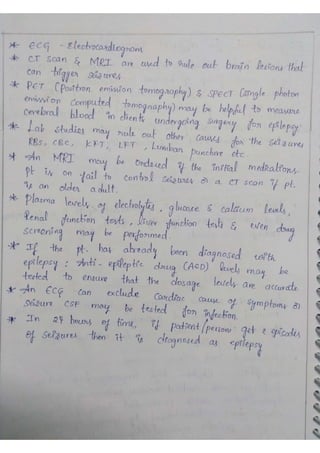 * ECG - Electrocardiogram
* CT scan & MRI are used to rule out brain lesions that
can trigger seizures
* PET (Positron emission tomography) & SPECT (single photon
emission computed tomography) may be helpful to measure
cerebral blood in clients undergoing surgery for epilepsy.
* Lab studies may rule out other causes for the seizures
RBS, CBC, KFT, LFT, Lumbar puncture etc.
* An MRI may be ordered if the initial medications
pt is on fail to control seizures or a CT scan if pt.
is an older adult.
* Plasma levels of electrolytes, glucose & calcium levels,
Renal function tests, liver function tests & even drug
screening may be performed
* If the pt. has already been diagnosed with
epilepsy: Anti-epileptic drug (AED) levels may be
tested to ensure that the dosage levels are accurate
* An ECG can exclude cardiac cause of symptoms or
seizure CSF may be tested for infection.
* In 24 hours of time, if patient/person get 2 episodes
of seizures then it is diagnosed as epilepsy